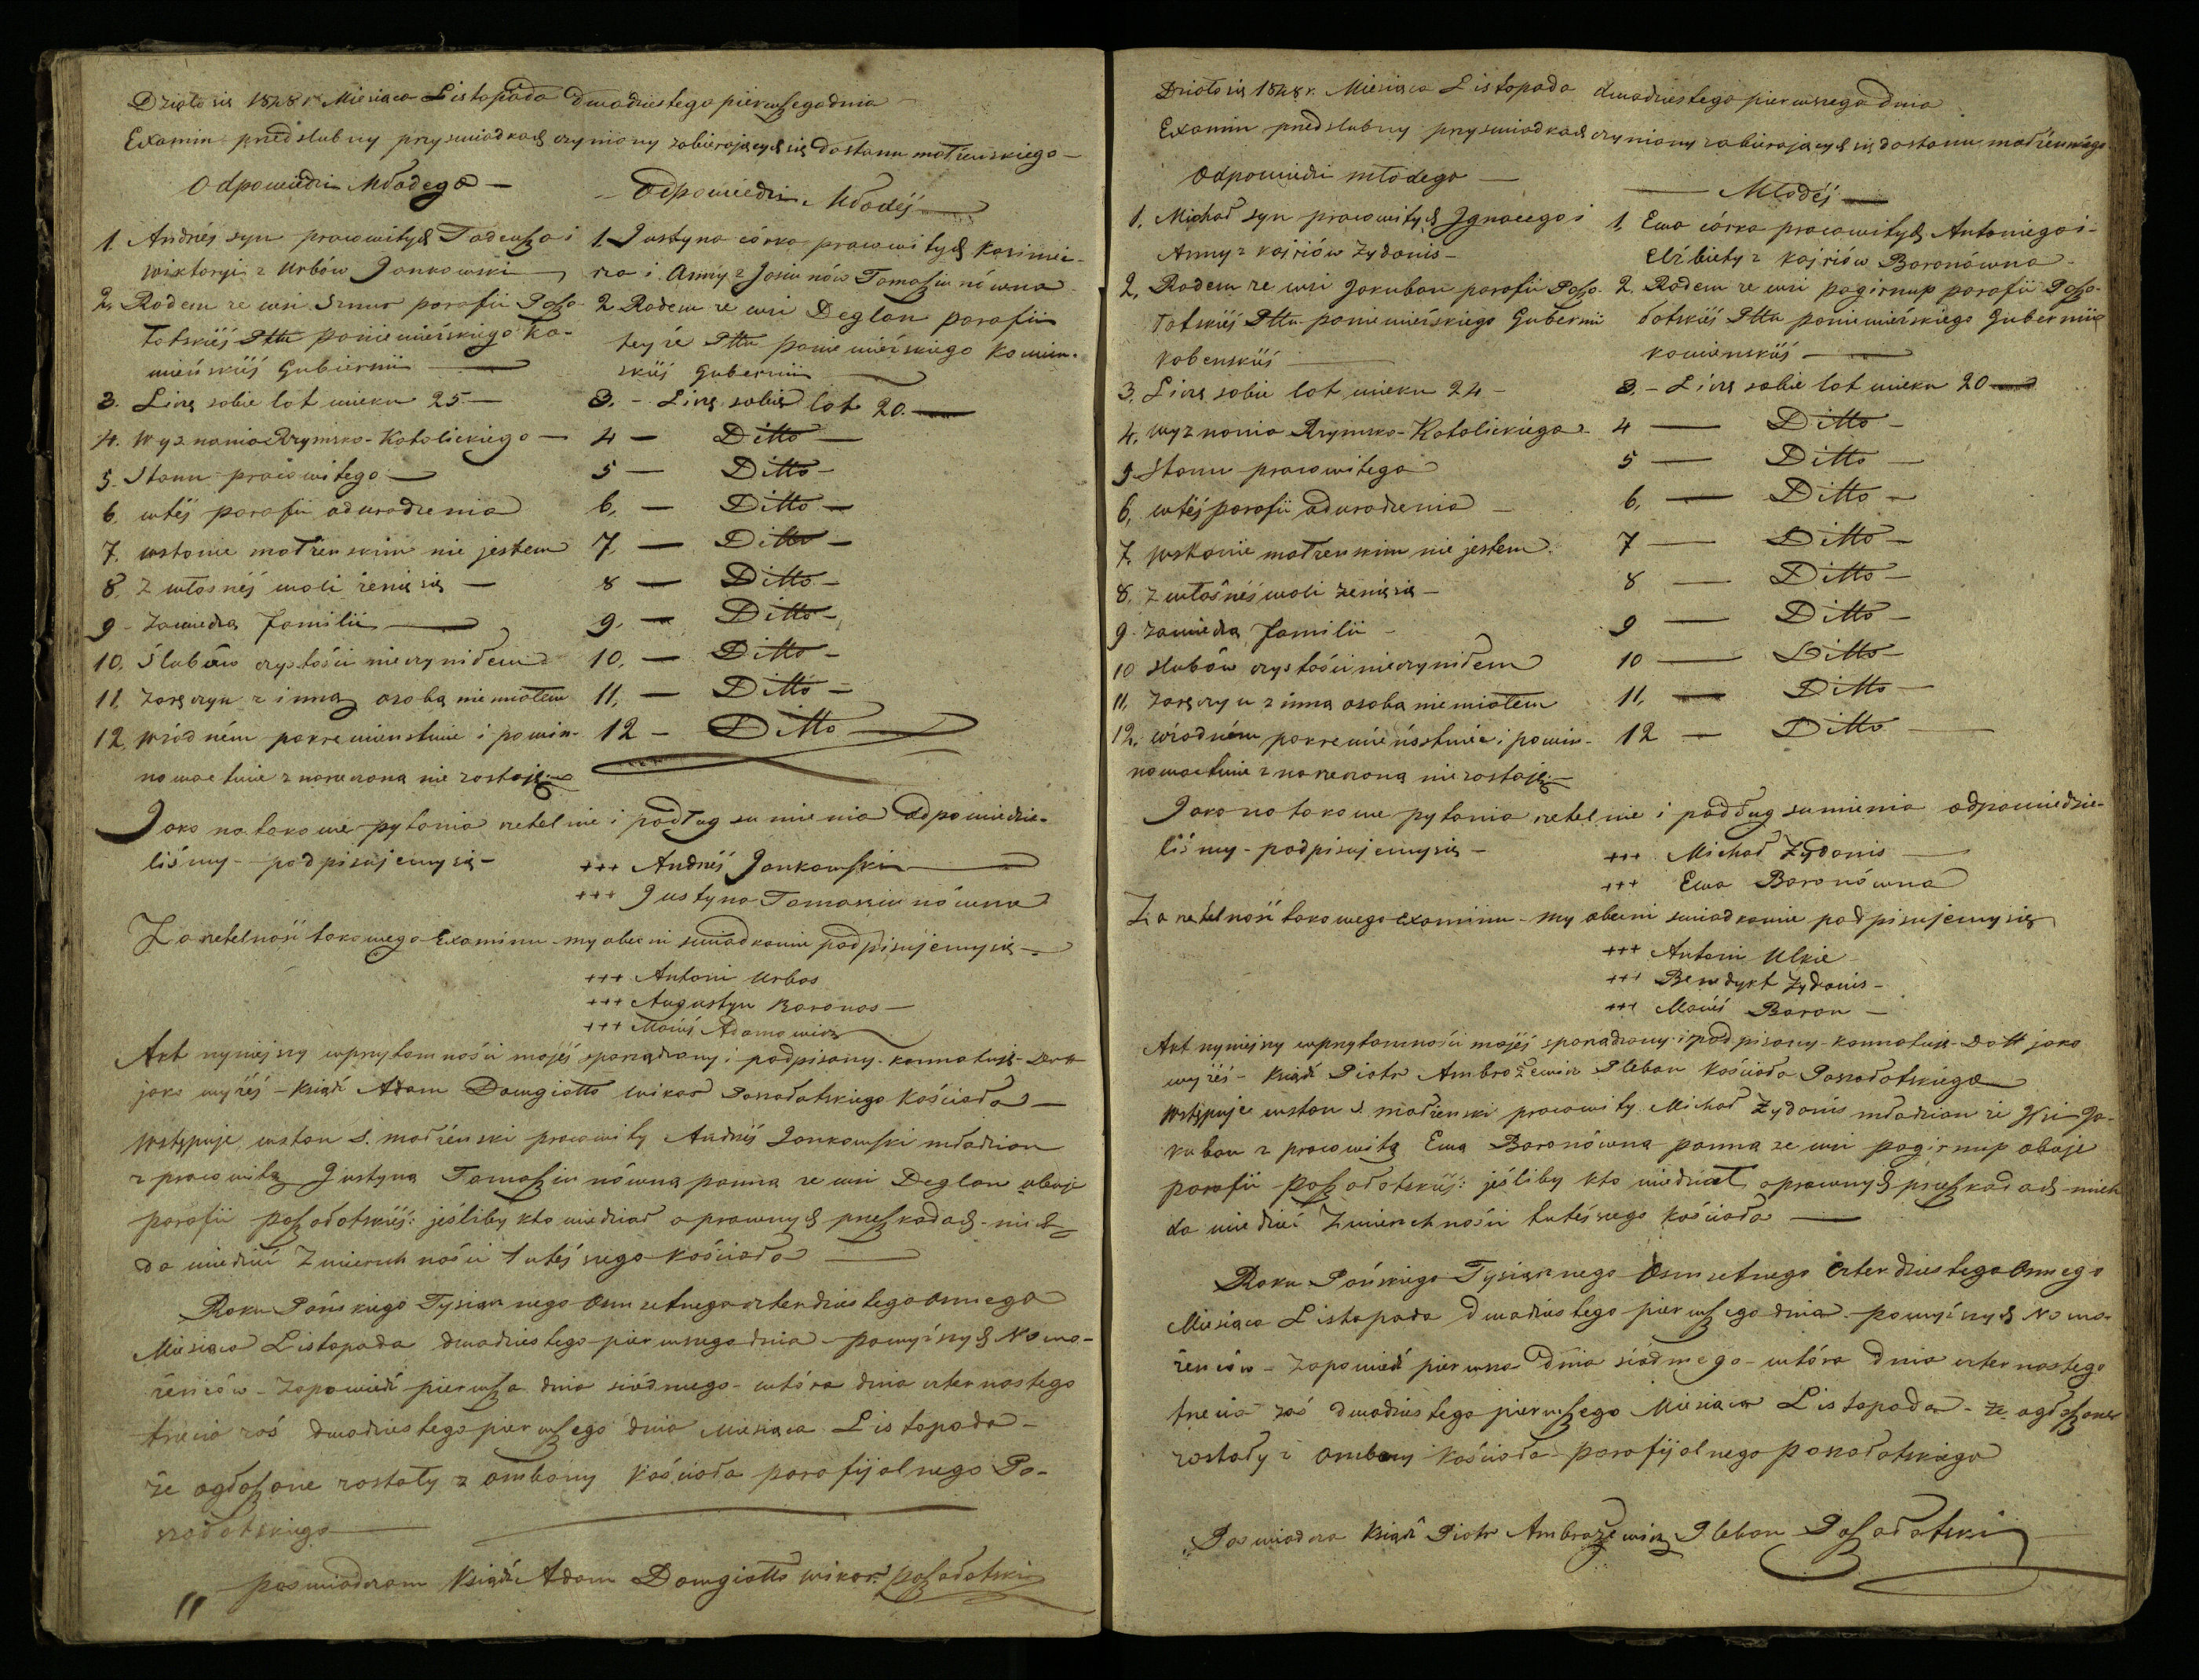 Działo się 1848 r. Miesiąca Listopada dwudziestego pierwszego dnia
Examin przedslubny przy swiadkach czyniony zabierających się do stanu małżenskiego
Odpowiedzi Młodego
1. Andrzéj syn pracowitych Tadeusza i
Wiktoryi z Urbów Jankowski
2. Rodem ze wsi parafii Posza-
łatskiéj Pttu poniewieżskiego Ko-
wieńskiéj Gubiernii
3. Liczę sobie lat wieku 25.
4. Wyznania Rzymsko-Katolickiego
5. Stanu pracowitego
6. w téj parafii od urodzenia
7. w stanie małżenskim nie jestem
8. Z własnéj woli żenię się
9. Za wiedzą Familii
10. Ślubów czystości nie czyniłem
11. Zaręczyn z inną osobą nie miałem
12. W żadném pokrewienstwie i powin-
nowactwie z narzeczoną nie zostaję
Odpowiedzi Młodéj
1. Justyna córka pracowitych Kazimie-
rza i Anny z Jasiunów Tomasziunówna
2. Rodem ze wsi Deglan parafii
teyże Pttu poniewieżskiego Kowien-
skiéj Gubernii
3. - Liczę sobie lat 20.
4 — Ditto —
5 — Ditto —
6. — Ditto —
7. — Ditto —
8 — Ditto —
9. — Ditto —
10. — Ditto —
11. — Ditto —
12 — Ditto
Jako na takowe pytania rzetelnie i podług sumienia odpowiedzie-
liśmy - podpisujemy się -
+++ Andrzéj Jankowski
+++ Justyna Tomasziunówna
Za rzetelność takowego Examinu - my obecni swiadkowie podpisujemy się
+++ Antoni Urbos
+++ Augustyn Baronas
+++ Maciéj Adamowicz
Akt nyniejszy w przytomności mojéj sporządzony i podpisany - konnotuję - Datt
jako wyżéj - Ksiądz Adam Dowgiatto wikar Poszałatskiego Kościoła
Wstępuje w stan S. małżeński pracowity Andrzéj Jankowski młodzian
z pracowitą Justyną Tomasziunówną panną ze wsi Deglan oboje
parafii poszałatskiéj: jeśliby kto wiedział o prawnych przeszkodach - niech
da wiedzieć Zwierzchności tutéjszego Kościoła
Roku Pańskiego Tysiącznego Osmsetnego czterdziestego osmego
Miesiąca Listopada dwudziestego pierwszego dnia - powyższych Nowo-
żeńców - Zapowiedź pierwsza dnia siódmego - wtóra dnia czternastego
trzecia zaś dwudziestego pierwszego dnia Miesiąca Listopada -
że ogłoszone zostały z ambony Kościoła parafijalnego Po-
szałatskiego
poswiadczam Ksiądz Adam Dowgiatto wikar. poszałatski
Działo się 1848 r. Miesiąca Listopada dwudziestego pierwszego dnia
Examin przedslubny przy swiadkach czyniony zabierających się do stanu małżenskiego
Odpowiedzi młodego
1. Michał syn pracowitych Ignacego i
Anny z Kajriów Żydanis -
2. Rodem ze wsi Jakuban parafii Posza-
łatskiéj Pttu poniewieżskiego Gubernii
3. Liczę sobie lat wieku 24 -
4. wyznania Rzymsko-Katolickiego
5 Stanu pracowitego
6. w téj parafii od urodzenia
7. W stanie małżenskim nie jestem.
8. Z własnéj woli żenię się -
9. Za wiedzą Familii -
10 Slubów czystości nie czyniłem
11. Zaręczyn z inną osobą nie miałem
12. w żadném pokrewieństwie i powin-
nowactwie z narzeczoną nie zostaję
Młodéj
1. Ewa córka pracowitych Antoniego i
Elżbiety z Kajriów Baronówna
2. Rodem ze wsi pagirnup parafii Posza-
łatskiéj Pttu poniewieżskiego Gubernii
kowienskiéj
3. - Liczę sobie lat wieku 20
4 — Ditto —
5 — Ditto —
6. — Ditto —
7 — Ditto —
8 — Ditto —
9 — Ditto —
10 — Ditto —
11. — Ditto —
12 — Ditto —
Jako na takowe pytania rzetelnie i podług sumienia odpowiedzie-
liśmy - podpisujemy się -
+++ Michał Żydanis
+++ Ewa Baronówna
Za rzetelność takowego examinu - my obecni swiadkowie podpisujemy się
+++ Antoni Ulkie
+++ Benedykt Żydanis -
+++ Maciéj Baron -
Akt nyniejszy w przytomności mojéj sporządzony i podpisany - konnotuję - Datt jako
wyżéj - Ksiądz Piotr Ambrożewicz Pleban Kościoła Poszałatskiego
Wstępuje w stan S. małżenski pracowity Michał Żydanis młodzian ze Wsi Ja-
kuban z pracowitą Ewą Baronówną panną ze wsi pagirnup oboje
parafii poszałatskiéj: jeśliby kto wiedział o prawnych przeszkodach - niech
da wiedzieć Zwierzchności tutéjszego Kościoła
Roku Pańskiego Tysiącznego Osmsetnego Czterdziestego Osmego
Miesiąca Listopada dwudziestego pierwszego dnia - powyższych Nowo-
żeńców - Zapowiedź pierwsza dnia siódmego - wtóra dnia czternastego
trzecia zaś dwudziestego pierwszego Miesiąca Listopada - że ogłoszone
zostały z ambony Kościoła parafijalnego poszałatskiego
Poswiadcza Ksiądz Piotr Ambrożewicz Pleban Poszałatski